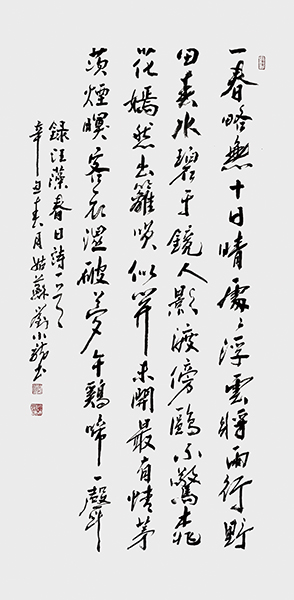 一春略無十日晴處〻浮雲將雨行野
田春水碧于鏡人影渡傍鷗不驚桃
花嫣然出籬笑似開未開最有情茅
茨煙暝客衣濕破夢午鷄啼一聲
錄汪藻春日詩一首
辛丑春月姑蘇劉小書